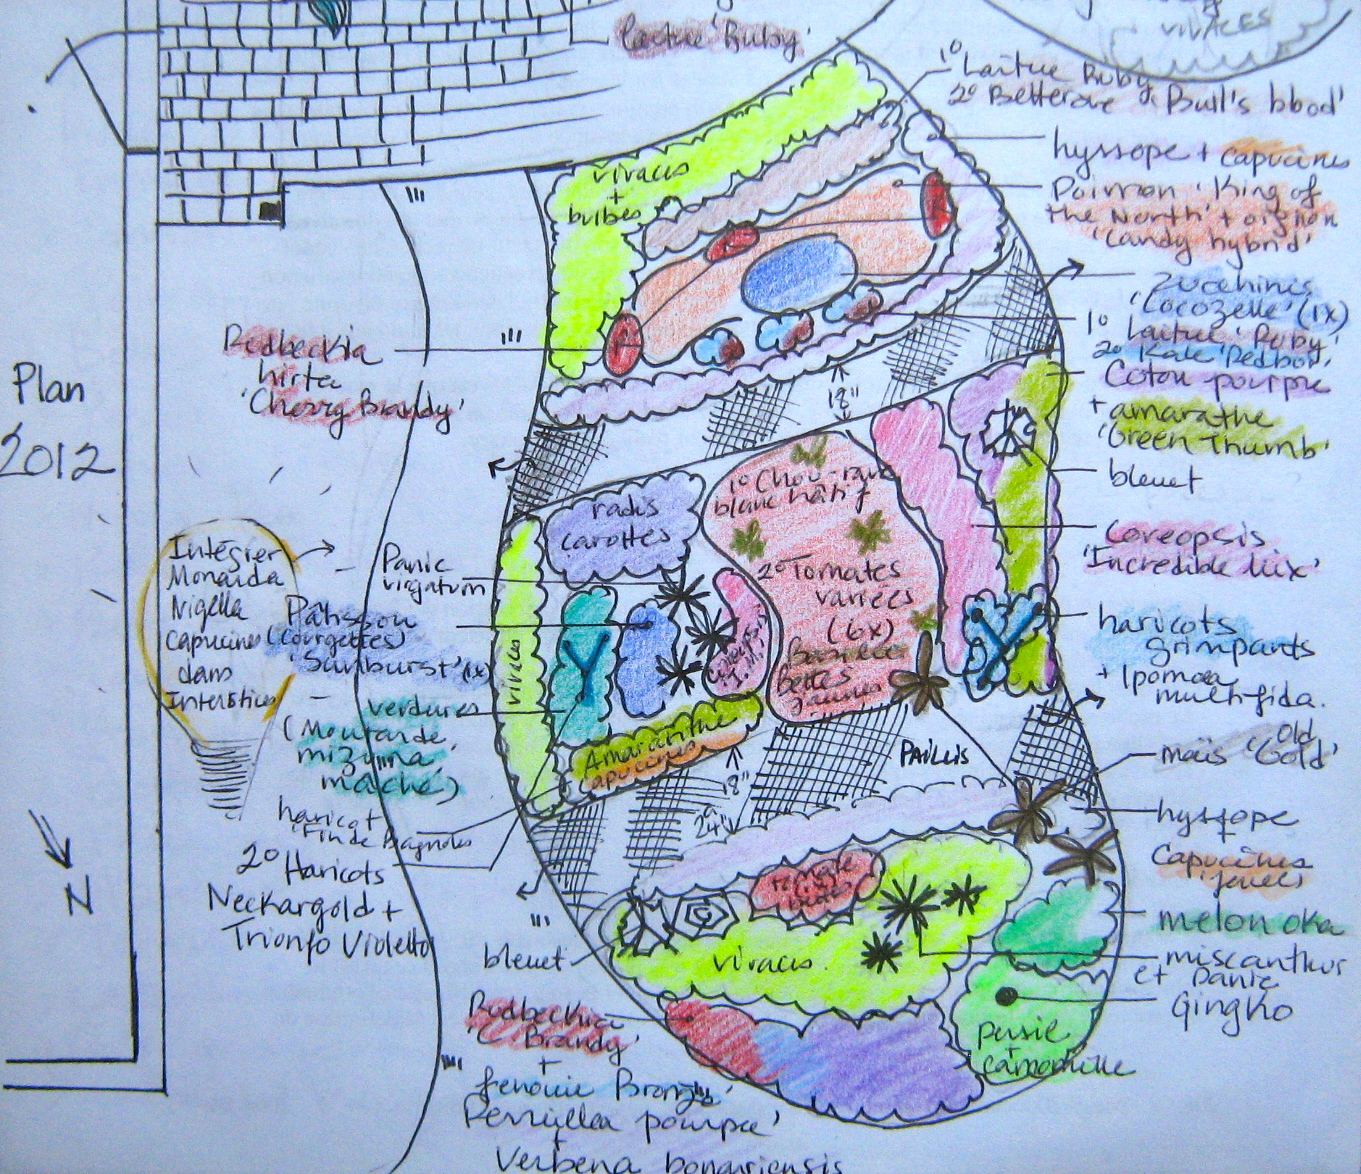 laitue 'Ruby'
VIVACES
1° Laitue Ruby
2° Betterave 'Bull's blood'
hyssope + capucines
Poivron 'King of
the North' + oignon
'Candy hybrid'
Zucchinis
'Cocozelle' (1x)
1° Laitue 'Ruby'
2° Kale 'Redbor'
Coton pourpre
+ amarathe
'Green Thumb'
bleuet
Coreopsis
'Incredible Mix'
haricots
grimpants
+ Ipomoea
multifida.
maïs 'Old
Gold'
hyssope
+
Capucines
melon oka
miscanthus
et Panic
Gingko
vivaces
+
bulbes
18"
Rudbeckia
hirta
'Cherry Brandy'
Plan
2012
Intégrer
Monarda
Nigella
Capucines
dans
Interstices
Panic
virgatum
Pâtisson
(Courgettes)
'Sunburst' (1x)
verdures
(Moutarde,
mizuna
mâche)
haricot
'Fin de Bagnols
2° Haricots
Neckargold +
Trionfo Violetto
N
radis
carottes
1° Chou-rave
blanc hâtif
2° Tomates
variées
(6x)
Basilic
Bettes
jaunes
vivaces
Amaranthe
Capucines
18"
24"
PAILLIS
vivaces.
bleuet
persil
+
camomille
Rudbeckia
'C. Brandy'
+
fenouil Bronze'
Perilla pourpre'
Verbena bonariensis